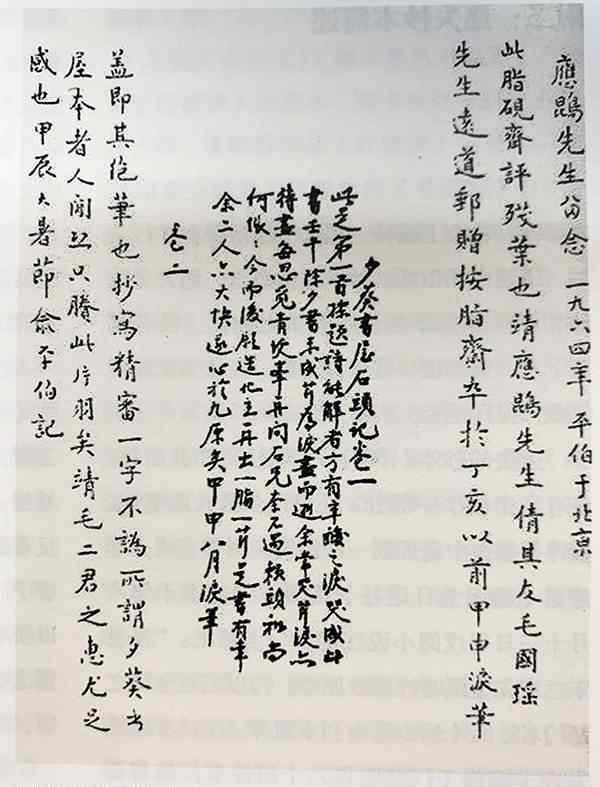 應鵾先生留念 一九六四年 平伯于北京
此脂硯齋評殘葉也靖應鵾先生倩其友毛國瑤
先生遠道郵贈按脂齋卒於丁亥以前甲申淚筆
夕葵書屋石頭記卷一
此是第一首標題詩能解者方有辛酸之淚哭成此
書壬午除夕書未成芹爲淚盡而逝余常哭芹淚亦
待盡每思覓青埂峯再問石兄奈不遇頭和尚
何悵悵今而後願造化主再出一脂一芹是書有幸
余二人亦大快遂心於九原矣甲申八月淚筆
卷二
蓋即其絕筆也抄寫精審一字不譌所謂夕葵書
屋本者人間恐只賸此片羽矣靖毛二君之惠尤足
感也甲辰大暑節俞平伯記